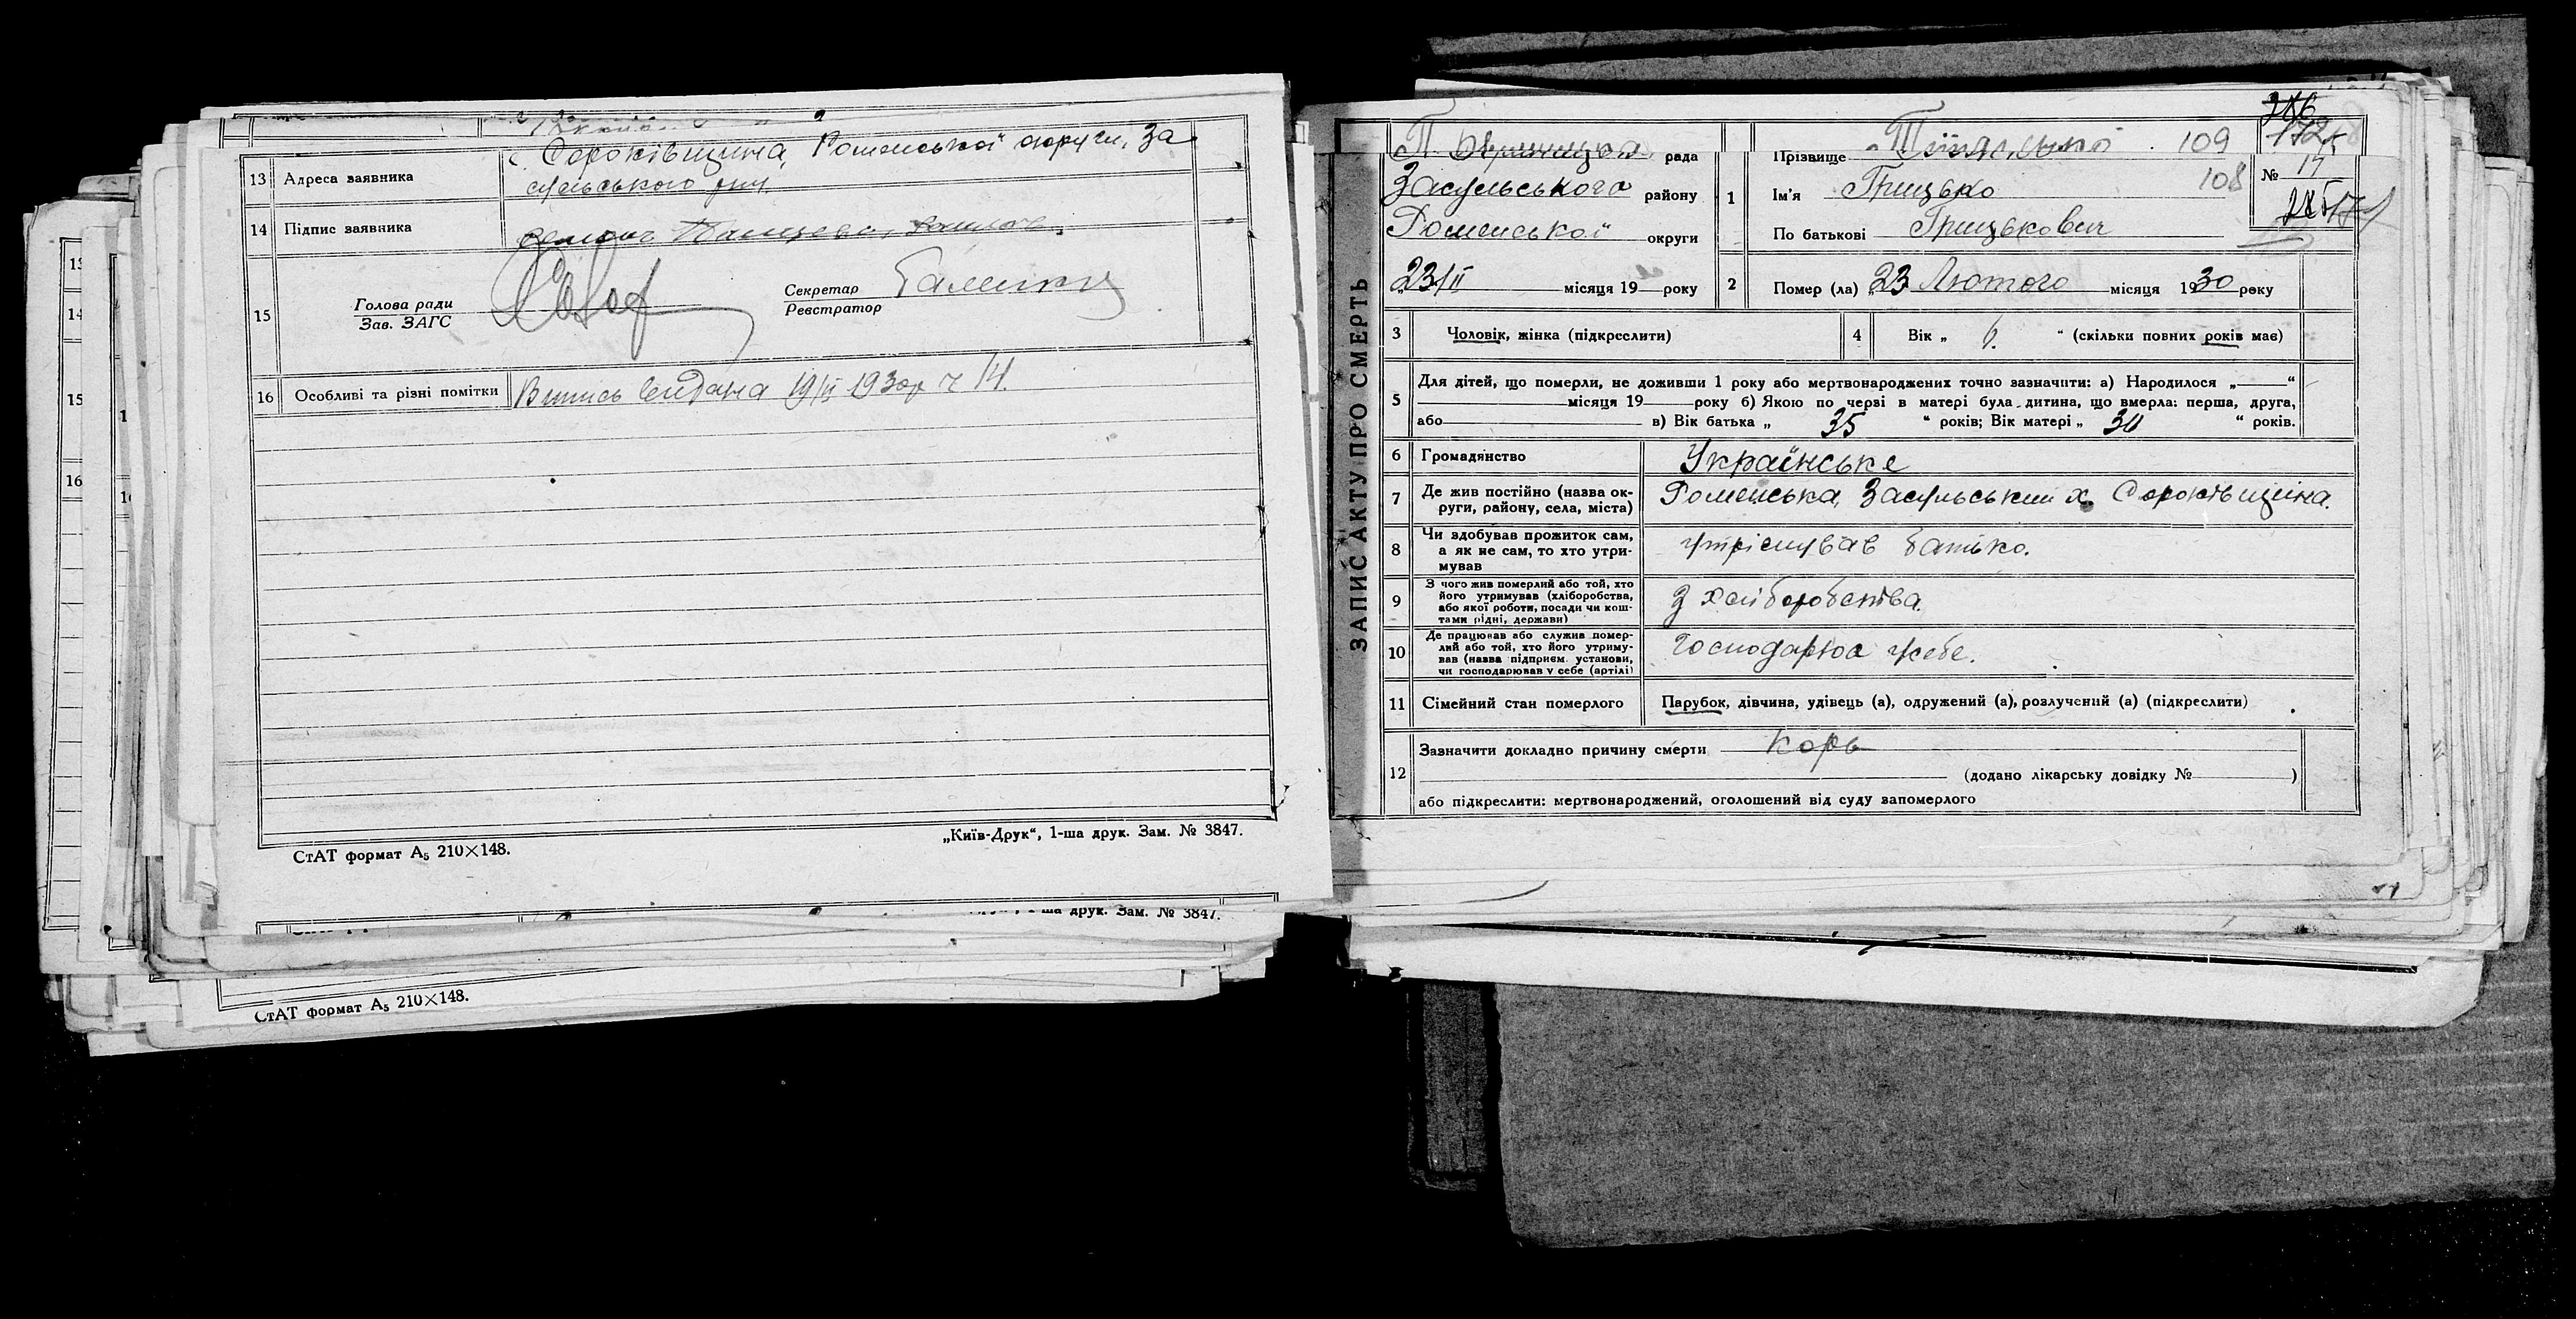 с. Сороківщина, Роменської округи, За
13 Адреса заявника
сульського р-ну
14 Підпис заявника
15
Голова ради
Зав. ЗАГС
Секретар
Реєстратор
16 Особливі та різні помітки
Випись видана 19/II 1930р ч 14.
„Київ-Друк“, 1-ша друк. Зам. № 3847.
СтАТ формат А5 210×148.
ша друк. Зам. № 3847.
СтАТ формат А5 210×148.
ЗАПИС АКТУ ПРО СМЕРТЬ
рада
Засульського району
Роменської округи
„23/II місяця 19 року
1 Прізвище
109
Ім'я Грицько
108
По батькові Грицькович
№ 17
2 Помер (ла) „23 Лютого місяця 1930 року
3 Чоловік, жінка (підкреслити)
4 Вік „ 6. “ (скільки повних років має)
5 Для дітей, що померли, не доживши 1 року або мертвонароджених точно зазначити: а) Народилося „ “
місяця 19 року б) Якою по черзі в матері була дитина, що вмерла: перша, друга,
або в) Вік батька „ 35 “ років; Вік матері „ 30 “ років.
6 Громадянство Українське
7 Де жив постійно (назва ок-
руги, району, села, міста)
Роменська, Засульський х. Сороківщина.
8 Чи здобував прожиток сам,
а як не сам, то хто утри-
мував
утрімував батько.
9 З чого жив померлий або той, хто
його утримував (хліборобства,
або якої роботи, посади чи кош-
тами рідні, держави)
З хліборобства.
10 Де працював або служив помер-
лий або той, хто його утриму-
вав (назва підприєм. установи,
чи господарював у себе (артілі)
господарює усебе.
11 Сімейний стан померлого
Парубок, дівчина, удівець (а), одружений (а), розлучений (а) (підкреслити)
12 Зазначити докладно причину смерти Корь
(додано лікарську довідку № )
або підкреслити: мертвонароджений, оголошений від суду запомерлого